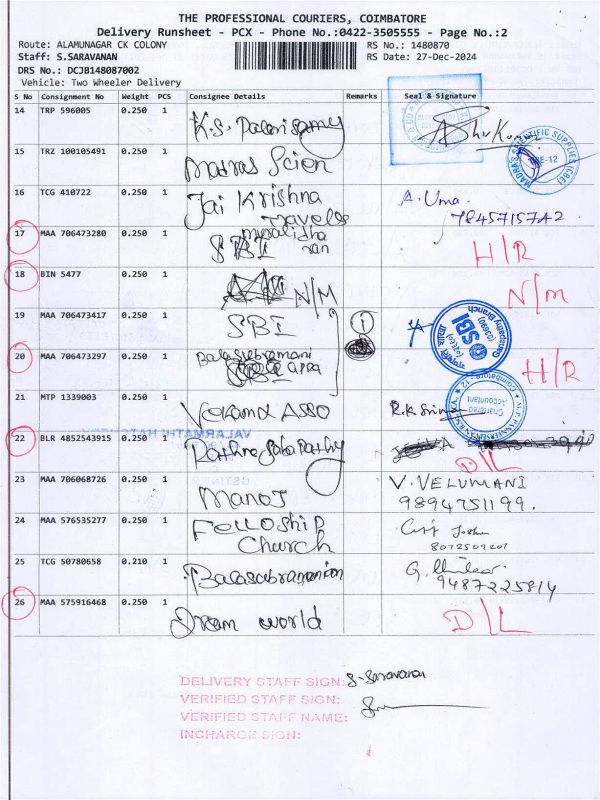 THE PROFESSIONAL COURIERS, COIMBATORE
Delivery Runsheet - PCX - Phone No.:0422-3505555 - Page No.:2
Route: ALAMUNAGAR CK COLONY
RS No.: 1480870
Staff: S.SARAVANAN
RS Date: 27-Dec-2024
DRS No.: DCJB148087002
Vehicle: Two Wheeler Delivery
S No Consignment No Weight PCS Consignee Details Remarks Seal & Signature
14 TRP 596005 0.250 1 K.S. Palanisamy
15 TRZ 100105491 0.250 1 Madras Scien
MADRAS SCIENTIFIC SUPPLIES (CBE)
CBE-12
16 TCG 410722 0.250 1 Jai Krishna Travels A. Uma
7845715742
17 MAA 706473280 0.250 1 Muralidharan SBI H/R
18 BIN 5477 0.250 1 N/M N/M
19 MAA 706473417 0.250 1 SBI 1
SBI
Ganapathy Branch
20 MAA 706473297 0.250 1 Balasubramani H/R
21 MTP 1339003 0.250 1 Vekand Asso R.K
Chartered
Accountant
22 BLR 4852543915 0.250 1 Rathnasabapathy D/L
23 MAA 706068726 0.250 1 Manoj V. VELUMANI
9894751199.
24 MAA 576535277 0.250 1 Felloship
Church
8072509201
25 TCG 50780658 0.210 1 Balasubramanian G.
9487225814
26 MAA 575916468 0.250 1 Dream world D/L
DELIVERY STAFF SIGN: S-Saravanan
VERIFIED STAFF SIGN:
VERIFIED STAFF NAME:
INCHARGE SIGN: